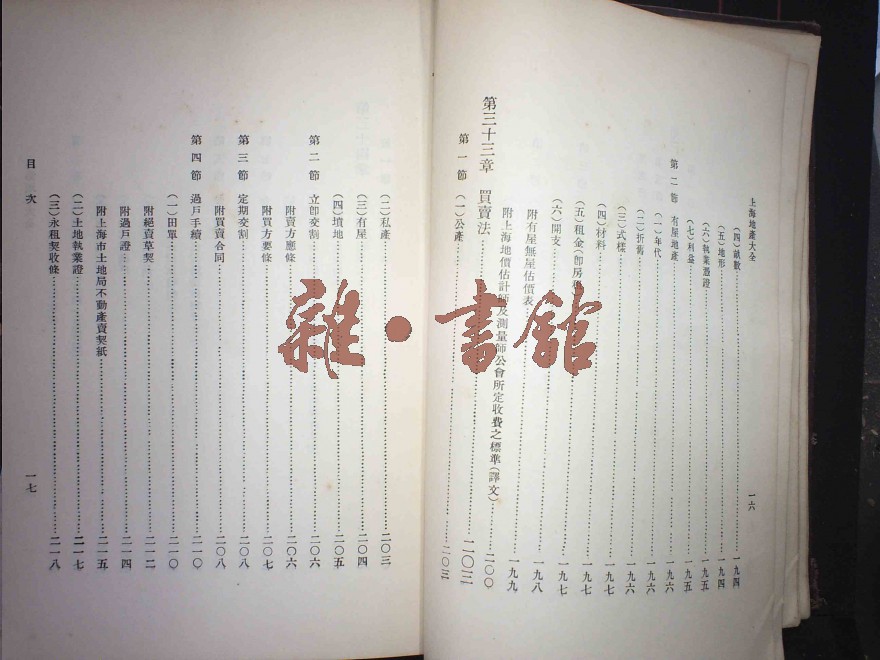 上海地產大全
一六
(四)畝數……一九四
(五)地形……一九四
(六)執業憑證……一九五
(七)利益……一九五
第二節 有屋地產……一九六
(一)年代……一九六
(二)折舊……一九六
(三)式樣……一九六
(四)材料……一九七
(五)租金(卽房租)……一九七
(六)開支……一九七
附有屋無屋估價表……一九八
附上海地價估計師及測量師公會所定收費之標準(譯文)……一九九
第三十三章 買賣法……二〇〇
第一節 (一)公產……二〇三
(二)私產……二〇三
(三)有屋……二〇四
(四)墳地……二〇五
第二節 立卽交割……二〇六
附賣方應條……二〇六
附買方要條……二〇七
第三節 定期交割……二〇八
附買賣合同……二〇八
第四節 過戶手續……二一〇
(一)田單……二一〇
附絕賣草契……二一二
附過戶證……二一四
附上海市土地局不動產賣契紙……二一五
(二)土地執業證……二一七
(三)永租契收條……二一八
目次
一七
雜·書館